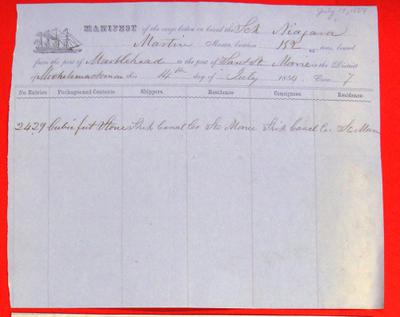 July 14, 1854
MANIFEST of the cargo laden on board the Sch Niagara
Martin Master, burthen 182 tons, bound
from the port of Marblehead to the port of Sault St Marie in the District
of Michilimackinac this 14th day of July 1854 Crew 7
No. Entries Packages and Contents Shippers. Residence Consignees. Residence
2429 Cubic feet Stone Ship Canal Co St Marie Ship Canal Co. St Marie